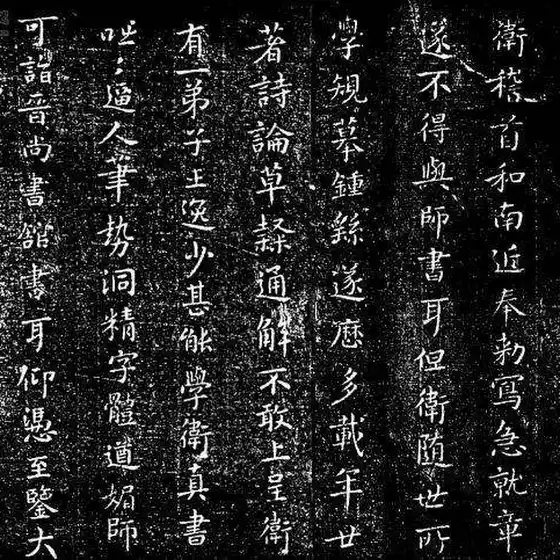 衛稽首和南近奉勑寫急就章
遂不得與師書耳但衛隨世所
學規摹鍾繇遂歷多載年廿
著詩論草隸通解不敢上呈衛
有一弟子王逸少甚能學衛真書
咄咄逼人筆勢洞精字體遒媚師
可詣晉尚書館書耳仰憑至鑒大